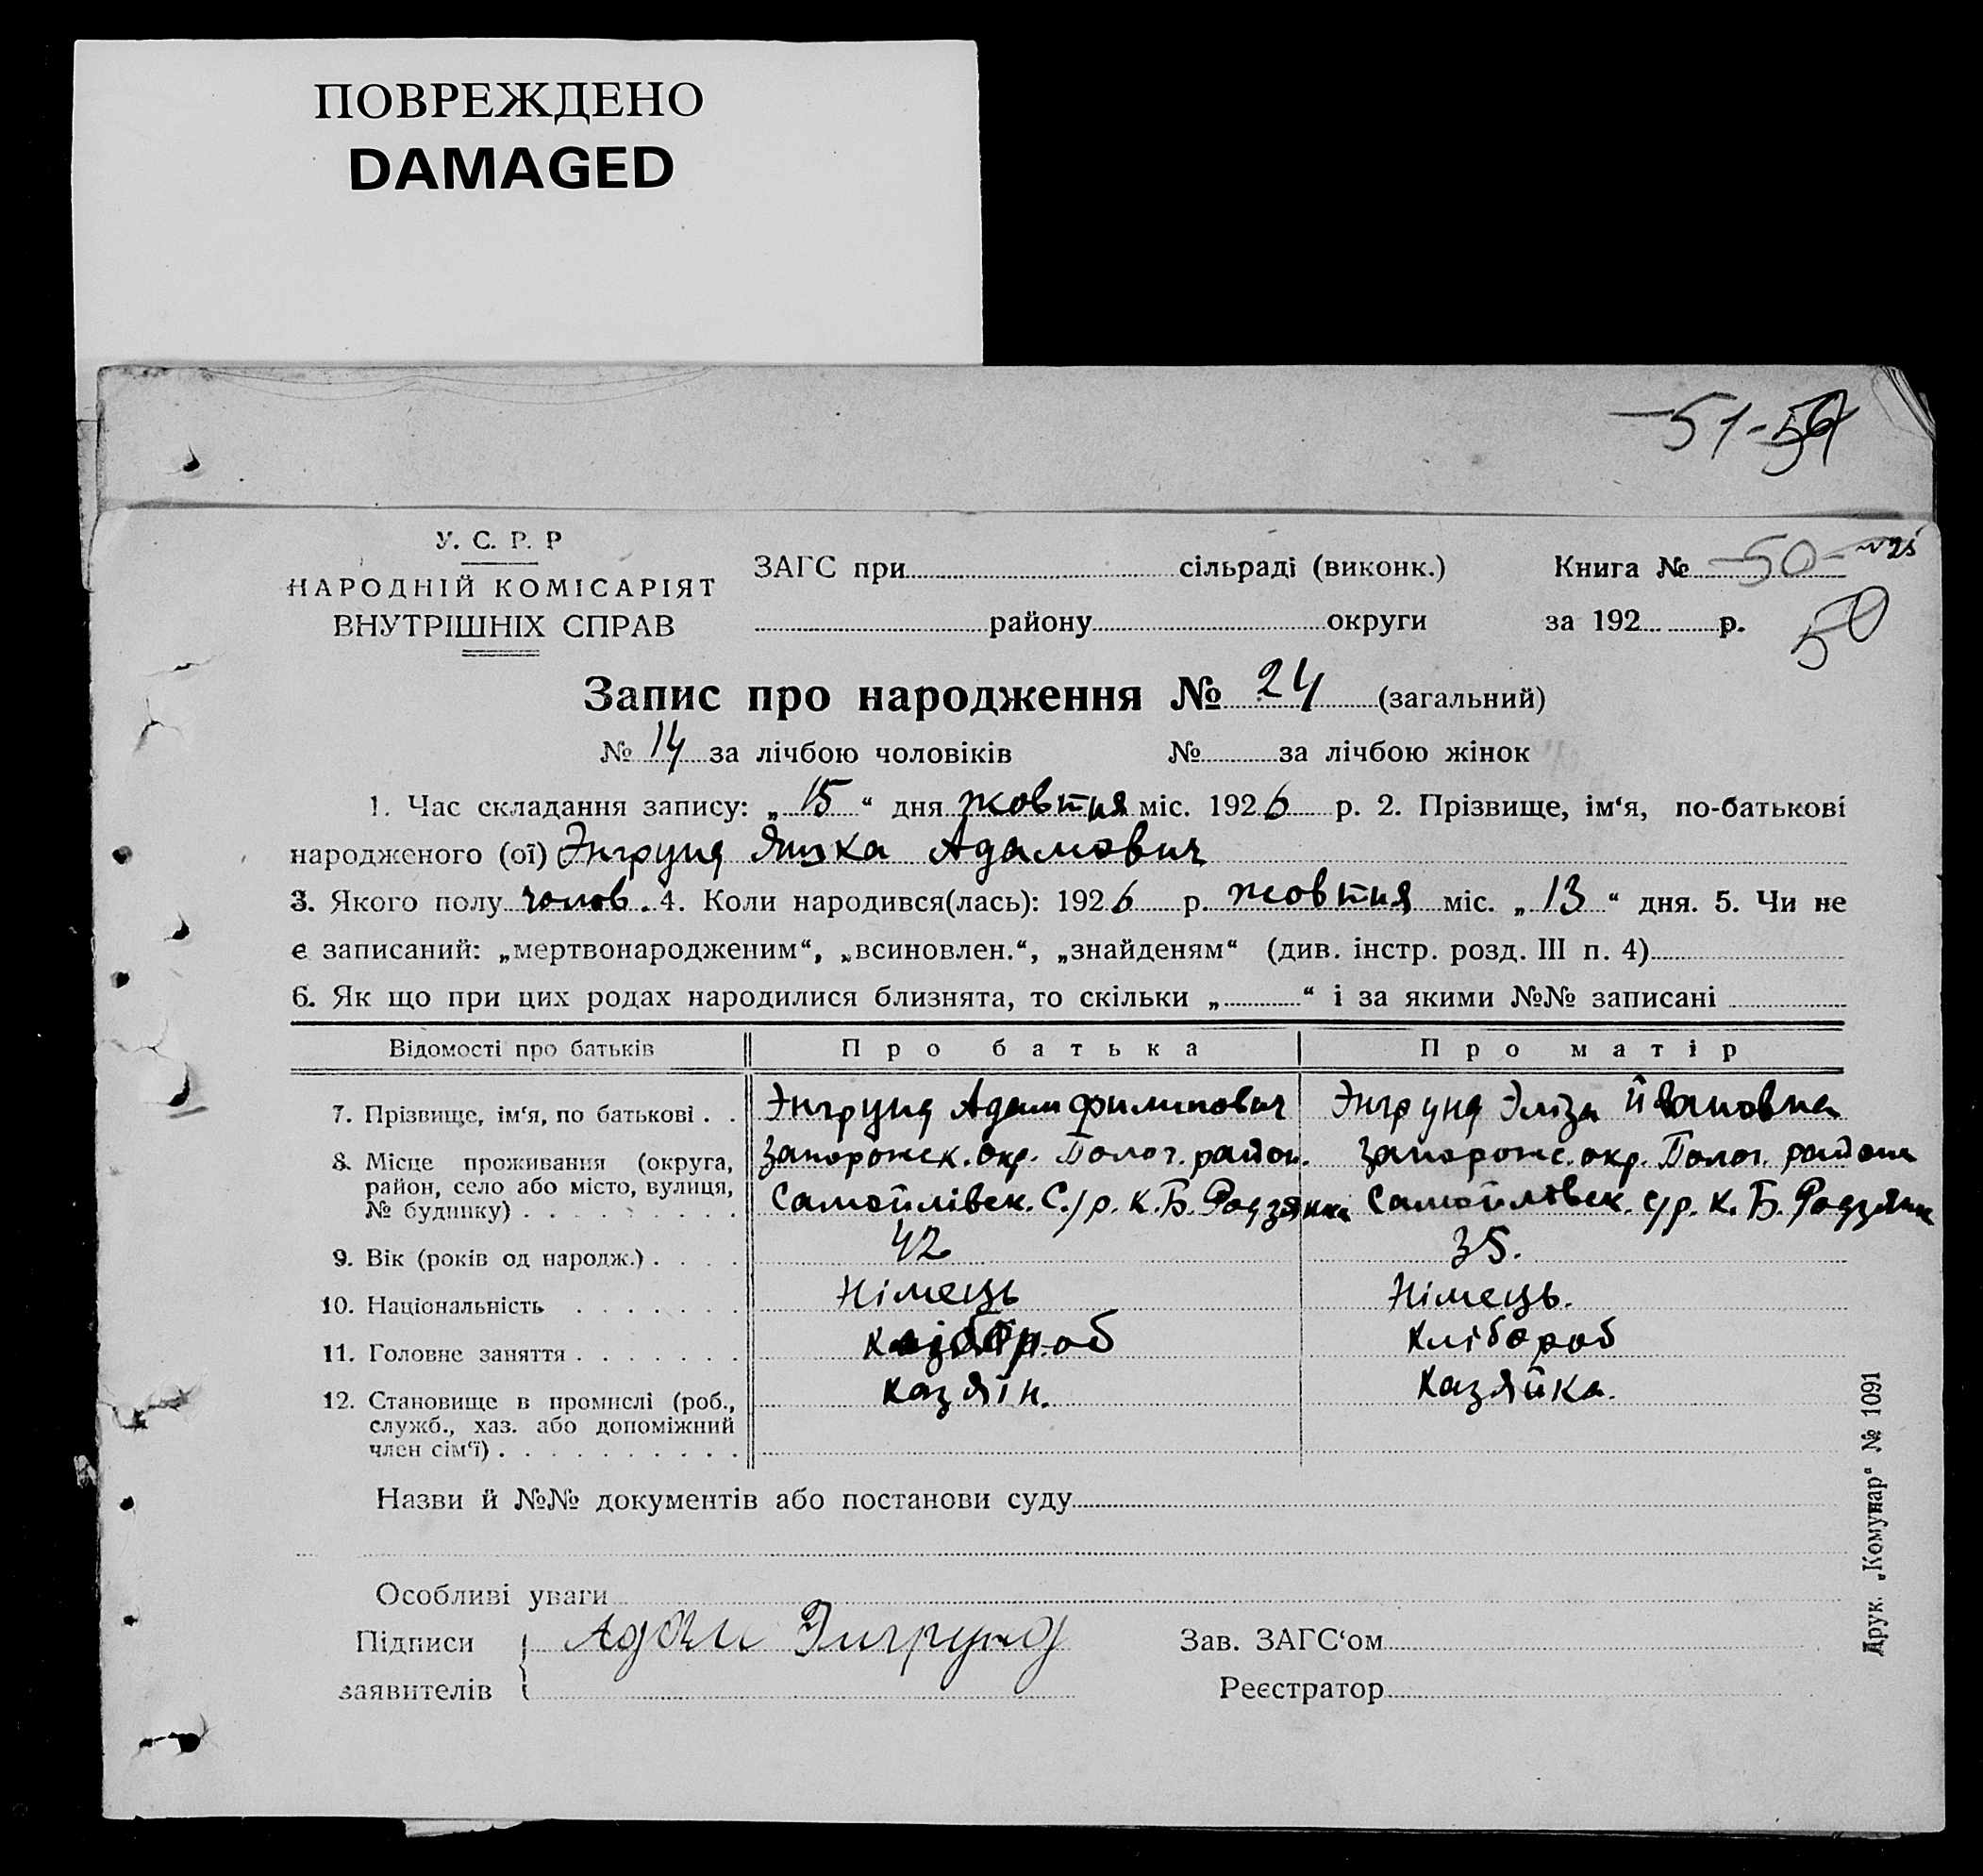 ПОВРЕЖДЕНО
DAMAGED
-51-
У. С. Р. Р
НАРОДНІЙ КОМІСАРІЯТ
ВНУТРІШНІХ СПРАВ
ЗАГС при сільраді (виконк.) Книга № -50-
району округи за 192 р. 50
Запис про народження № 24 (загальний)
№ 14 за лічбою чоловіків № за лічбою жінок
1. Час складання запису: „15“ дня жовтня міс. 1926 р. 2. Прізвище, ім‘я, по-батькові
народженого (ої) Энгрунд Яшка Адамович
3. Якого полу чолов. 4. Коли народився(лась): 1926 р. жовтня міс. „13“ дня. 5. Чи не
є записаний: „мертвонародженим“, „всиновлен.“, „знайденям“ (див. інстр. розд. III п. 4)
6. Як що при цих родах народилися близнята, то скільки „ “ і за якими №№ записані
Відомості про батьків Про батька Про матір
7. Прізвище, ім‘я, по батькові . . Энгрунд Адам Филипович Энгрунд Эліза Йвановна
8. Місце проживання (округа, район, село або місто, вулиця, № будинку) . . . . . . . . .
Запорожск. окр. Полог. район.
Самойлівск. С/р. к. Б. Родзянка
Запорожс. окр. Полог. района
Самойлівск. с/р. к. Б. Родзянка
9. Вік (років од народж.) . . . . 42 35.
10. Національність . . . . . . . Німець Німець.
11. Головне заняття . . . . . . . хлібороб хлібороб
12. Становище в промислі (роб., служб., хаз. або допоміжний член сім‘ї) . . . . . . . . . .
хазяін.
хазяйка.
Назви й №№ документів або постанови суду
Особливі уваги
Підписи заявителів Адам Энгрунд
Зав. ЗАГС‘ом
Реєстратор
Друк. „Комунар“ № 1091